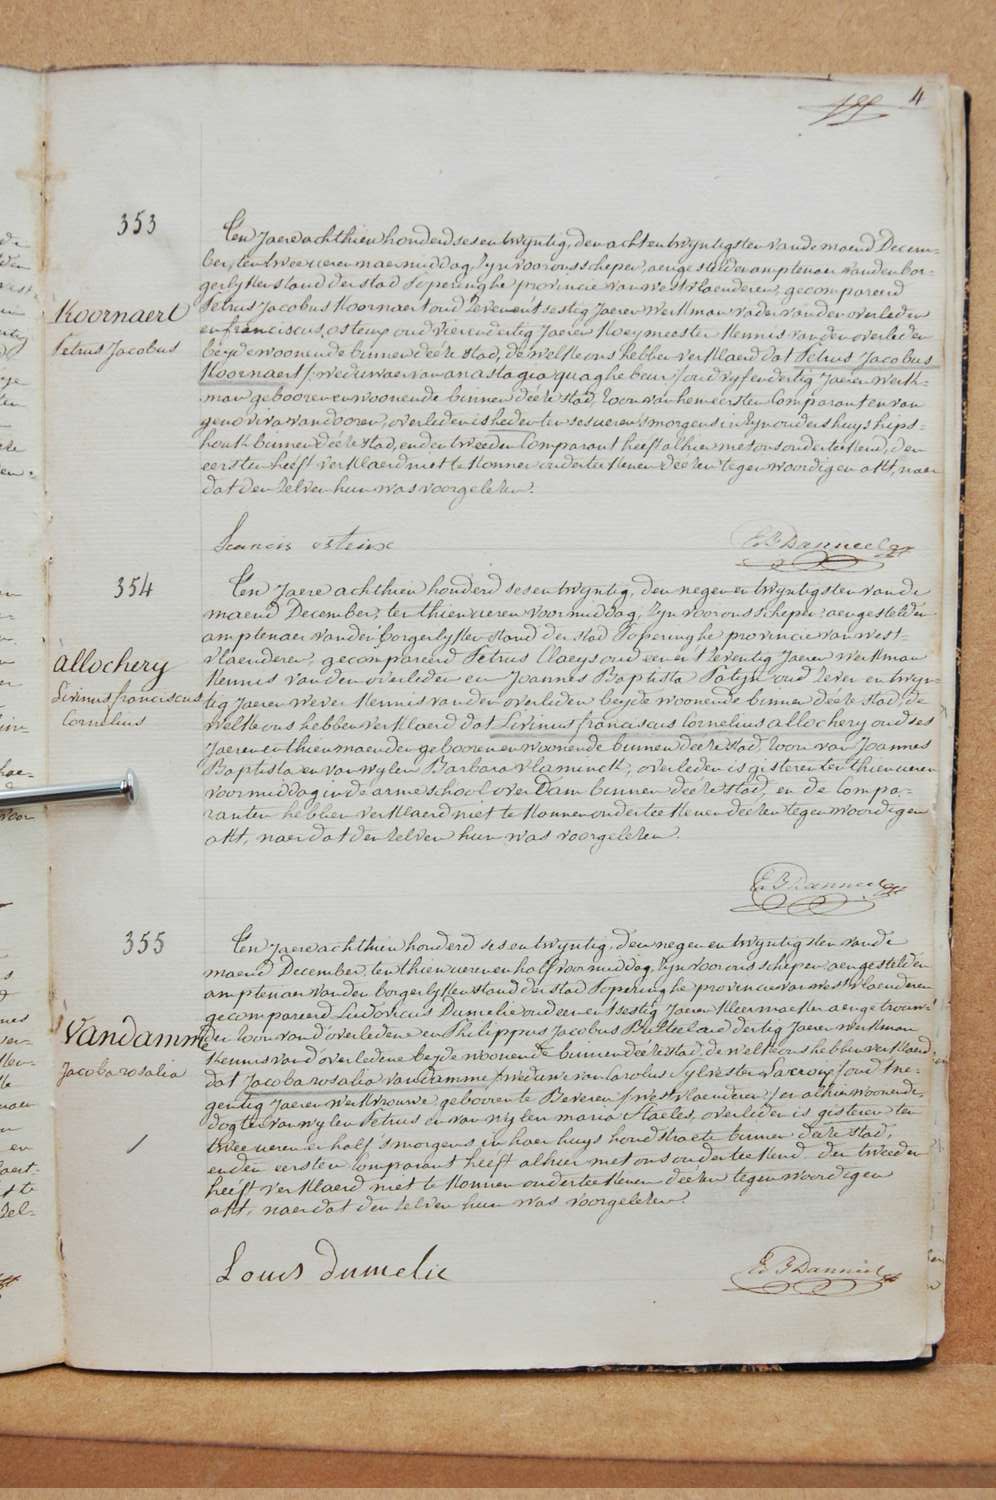 4
353
Koornaert
Petrus Jacobus
Ten Jaere achthien honderd ses en twyntig, den acht en twyntigsten van de maend Decem-
ber, ten twee ueren naer middag, zyn voor ons schepen, aengestelden amptenaer van den bor-
gerlyken stand der stad Poperinghe provincie van westvlaenderen, gecompareerd
Petrus Jacobus Koornaert oud zeven en t'sestig Jaeren werkman vader van den overleden
en franciscus osteux oud vier en dertig Jaeren Koeymeester Kennis van den overleden
beyde woonende binnen deeze stad, de welke ons hebben verklaerd dat Petrus Jacobus
Koornaert / weduwaer van anastasia quaghebeur / oud vyf en dertig Jaeren werk-
man gebooren en woonende binnen deeze stad, zoon van hem eersten Comparant en van
genoviva vandooren, overleden is heden ten ses ueren s'morgens in zyn ouders huys hips-
houk binnen deeze stad, en den tweeden Comparant heeft alhier met ons onderteekend, den
eersten heeft verklaerd niet te konnen onderteekenen deezen tegenwoordigen akt, naer
dat den zelven hun was voorgelezen.
Francis osteux
354
allochery
Livinus franciscus
Cornelius
Ten Jaere achthien honderd ses en twyntig, den negen en twyntigsten van de
maend December, ten thien ueren voormiddag, zyn voor ons schepen aengestelden
amptenaer van den borgerlyken stand der stad Poperinghe provincie van west-
vlaenderen, gecompareerd Petrus Claeys oud een en t'zeventig Jaeren werkman
Kennis van den overleden en Joannes Baptista Patyn oud zeven en twyn-
tig Jaeren wever Kennis van den overleden beyde woonende binnen deeze stad, de
welke ons hebben verklaerd dat Livinus franciscus Cornelius allochery oud ses
Jaeren en thien maenden gebooren en woonende binnen deeze stad, zoon van Joannes
Baptista en van wylen Barbara vlaminck, overleden is gisteren ten thien ueren
voormiddag in de arme school over Dam binnen deeze stad, en de Compa-
ranten hebben verklaerd niet te konnen onderteekenen deezen tegenwoordigen
akt, naer dat den zelven hun was voorgelezen.
355
Vandamme
Jacoba rosalia
Ten Jaere achthien honderd ses en twyntig, den negen en twyntigsten van de
maend December, ten thien ueren en half voormiddag, zyn voor ons schepen aengestelden
amptenaer van den borgerlyken stand der stad Poperinghe provincie van westvlaenderen
gecompareerd Ludovicus Dumelie oud een en t'sestig Jaeren Kleermaeker aengetrouw-
den zoon van d'overledene en Philippus Jacobus Butteel oud dertig Jaeren werkman
Kennis van d'overledene beyde woonende binnen deeze stad, de welke ons hebben verklaerd
dat Jacoba rosalia vandamme / weduwe van Carolus Sylvester / oud t'ne-
gentig Jaeren werkvrouwe gebooren te Beveren / westvlaenderen / en alhier woonende
dogter van wylen Petrus en van wylen maria Staeles, overleden is gisteren ten
twee ueren en half s'morgens in haer huys hondstraete binnen deeze stad,
en den eersten Comparant heeft alhier met ons onderteekend den tweeden
heeft verklaerd niet te konnen onderteekenen deezen tegenwoordigen
akt, naer dat den zelven hun was voorgelezen.
Louis Dumelie